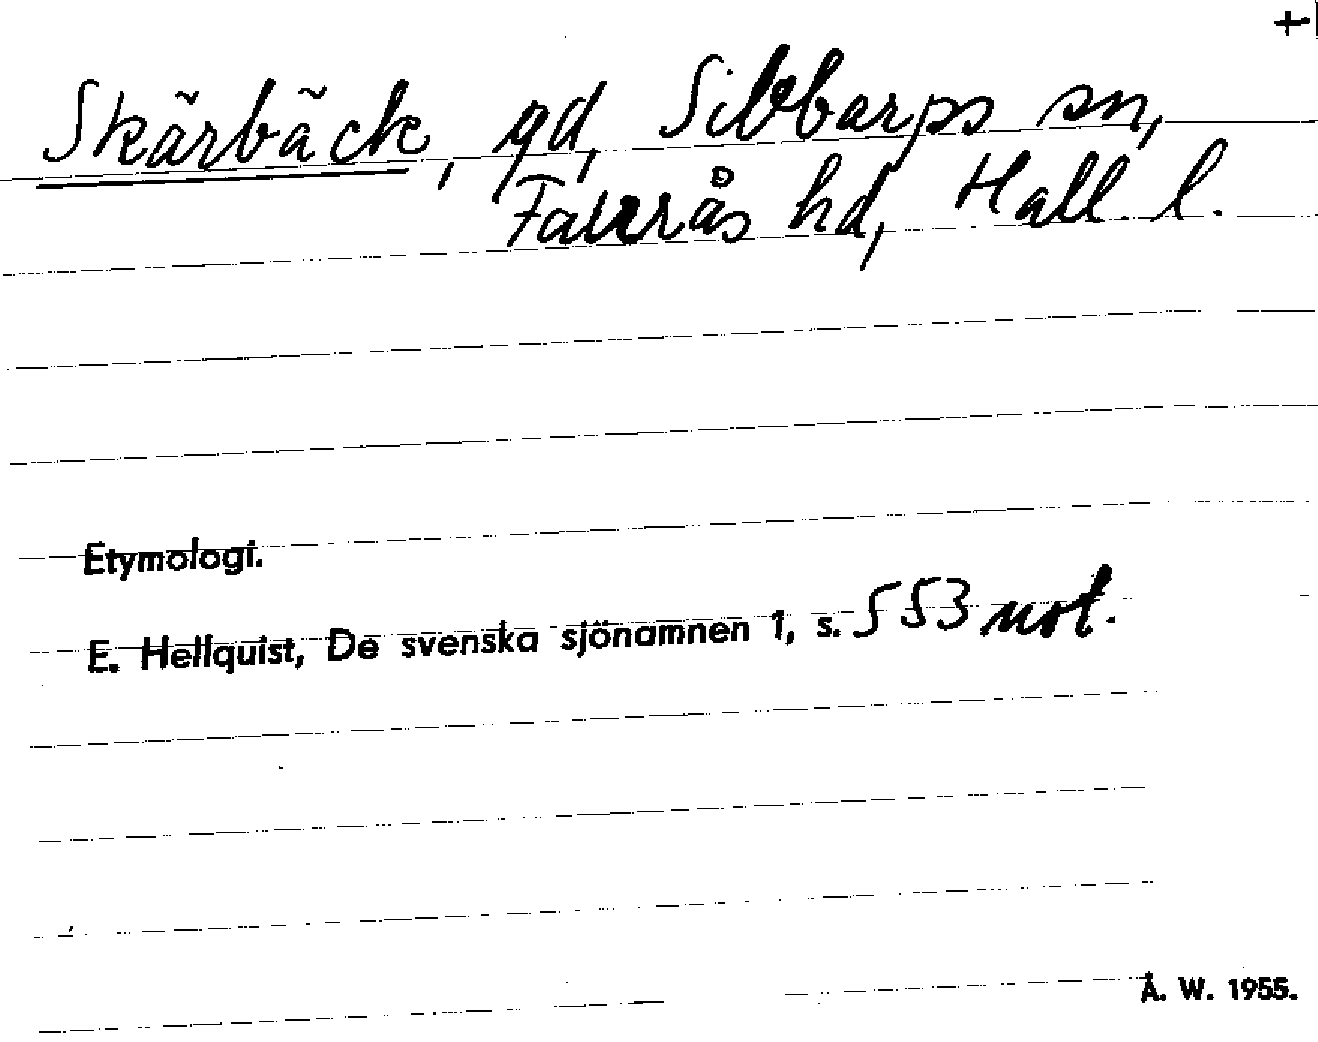 +
Skärbäck, gd, Sibbarps sn,
Faurås hd, Hall. l.
Etymologi.
E. Hellquist, De svenska sjönamnen 1, s. 553 not.
Å. W. 1955.